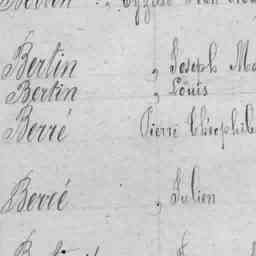 Bertin , Joseph Ma
Bertin , Louis
Berré Pierre Théophil
Berré , Julien